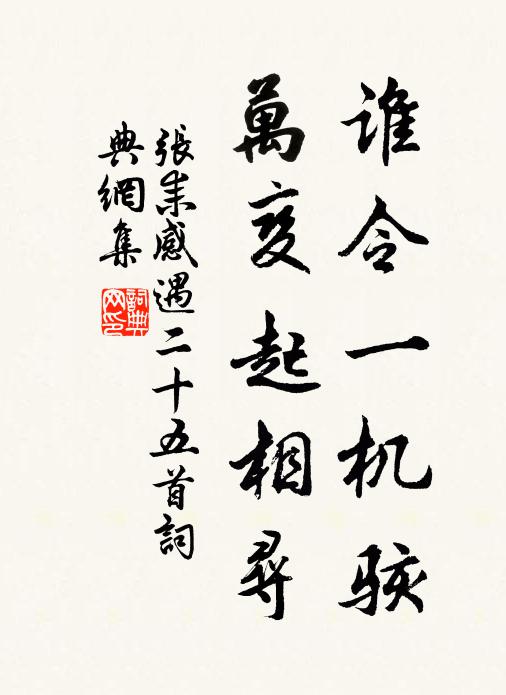 谁令一机骇
萬变起相尋
張耒感遇二十五首詞
典網集
詞典網印